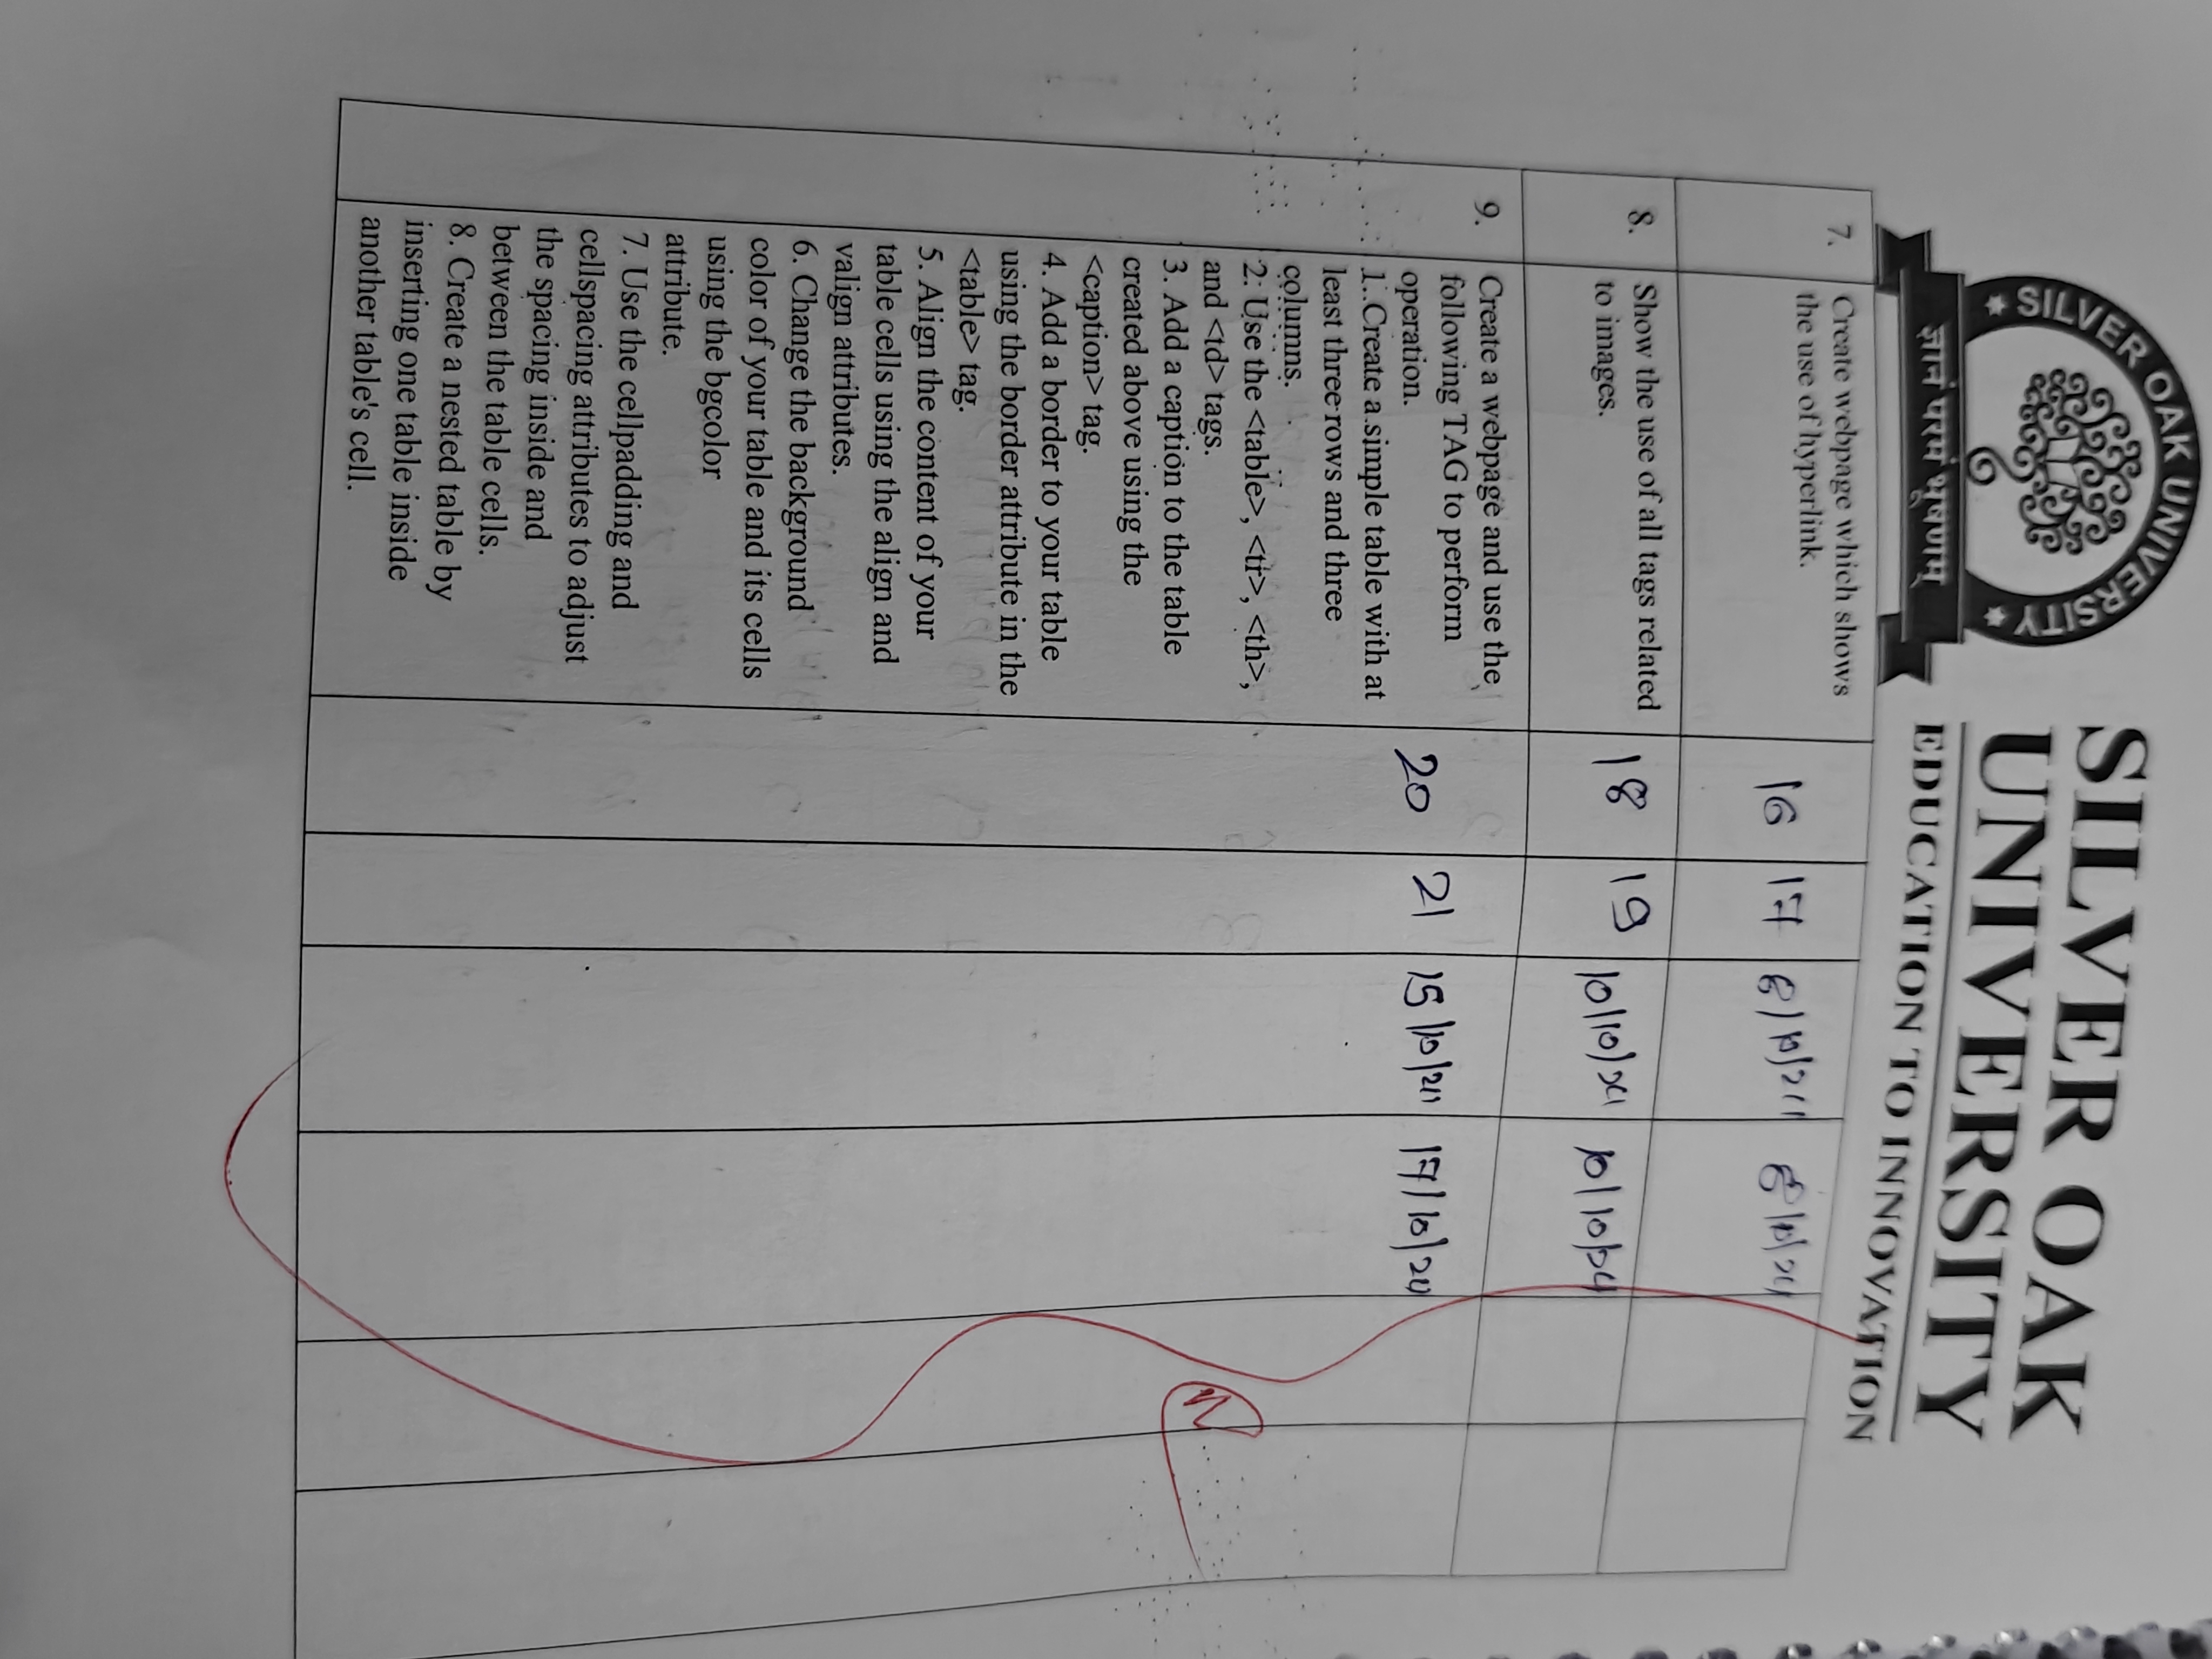 SILVER OAK UNIVERSITY
ज्ञानं परमं भूषणम्
SILVER OAK
UNIVERSITY
EDUCATION TO INNOVATION
7. Create webpage which shows 16 17 8/10/24 8/10/24
the use of hyperlink.
8. Show the use of all tags related 18 19 10/10/24 10/10/24
to images.
9. Create a webpage and use the
following TAG to perform
operation. 20 21 15/10/24 17/10/24
1. Create a simple table with at
least three rows and three
columns.
2. Use the <table>, <tr>, <th>,
and <td> tags.
3. Add a caption to the table
created above using the
<caption> tag.
4. Add a border to your table
using the border attribute in the
<table> tag.
5. Align the content of your
table cells using the align and
valign attributes.
6. Change the background
color of your table and its cells
using the bgcolor
attribute.
7. Use the cellpadding and
cellspacing attributes to adjust
the spacing inside and
between the table cells.
8. Create a nested table by
inserting one table inside
another table's cell.